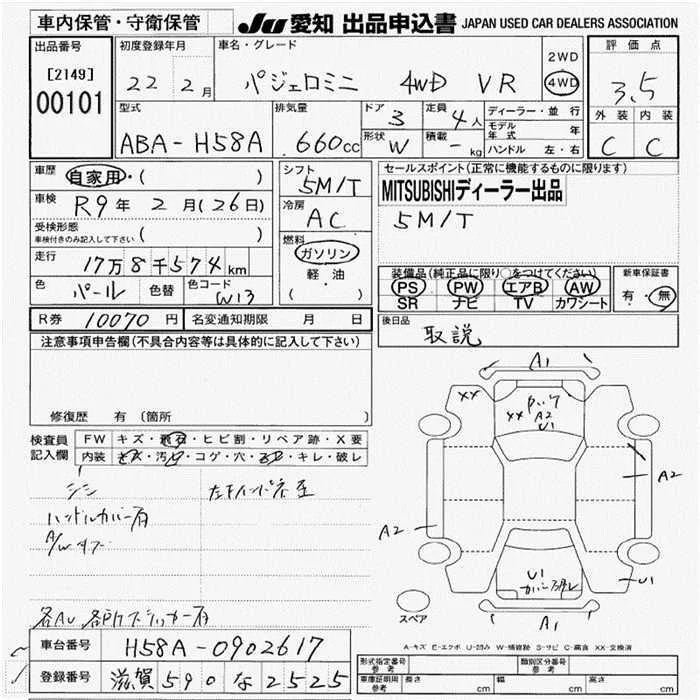 車内保管・守衛保管 JU 愛知 出品申込書 JAPAN USED CAR DEALERS ASSOCIATION
出品番号 初度登録年月 車名・グレード 2WD 評価点
[2149] 22年 2月 パジェロミニ 4WD VR 4WD 3.5
00101 型式 排気量 ドア 3 定員 4人 ディーラー・並行 外装 内装
ABA-H58A .660cc 形状 W 積載 - kg モデル年式 年 C C
ハンドル 左・右
車歴 自家用・( ) シフト セールスポイント(正常に機能するものに限ります)
車検 R9年 2月(26日) 5M/T MITSUBISHIディーラー出品
冷房 AC 5M/T
受検形態 車検付きのみ記入して下さい ( ) 燃料
走行 17万8千574km ガソリン 装備品(純正品に限り○をつけてください) 新車保証書
軽・油 PS PW エアB AW 有・無
色 パール 色替 色コード W13 ( ) SR ナビ TV カワシート
R券 10070円 名変通知期限 月 日 後日品
注意事項申告欄(不具合内容等は具体的に記入して下さい) 取説
A1
XX
XX A2
U1
修復歴 有(箇所
検査員 FW キズ・飛石・ヒビ割・リペア跡・X要
記入欄 内装 キズ・汚れ・コゲ・穴・・キレ・破レ
A2
ハンドルカバー有
A2
U1
U1
スペア A1
A-キズ E-エクボ U-凹み W-補修跡 S-サビ C-腐食 XX-交換済
車台番号 H58A-0902617
登録番号 滋賀 590 な 2525
形式指定番号 参考 類別区分番号 参考
車庫証明用 参考 長さ cm 幅 cm 高さ cm